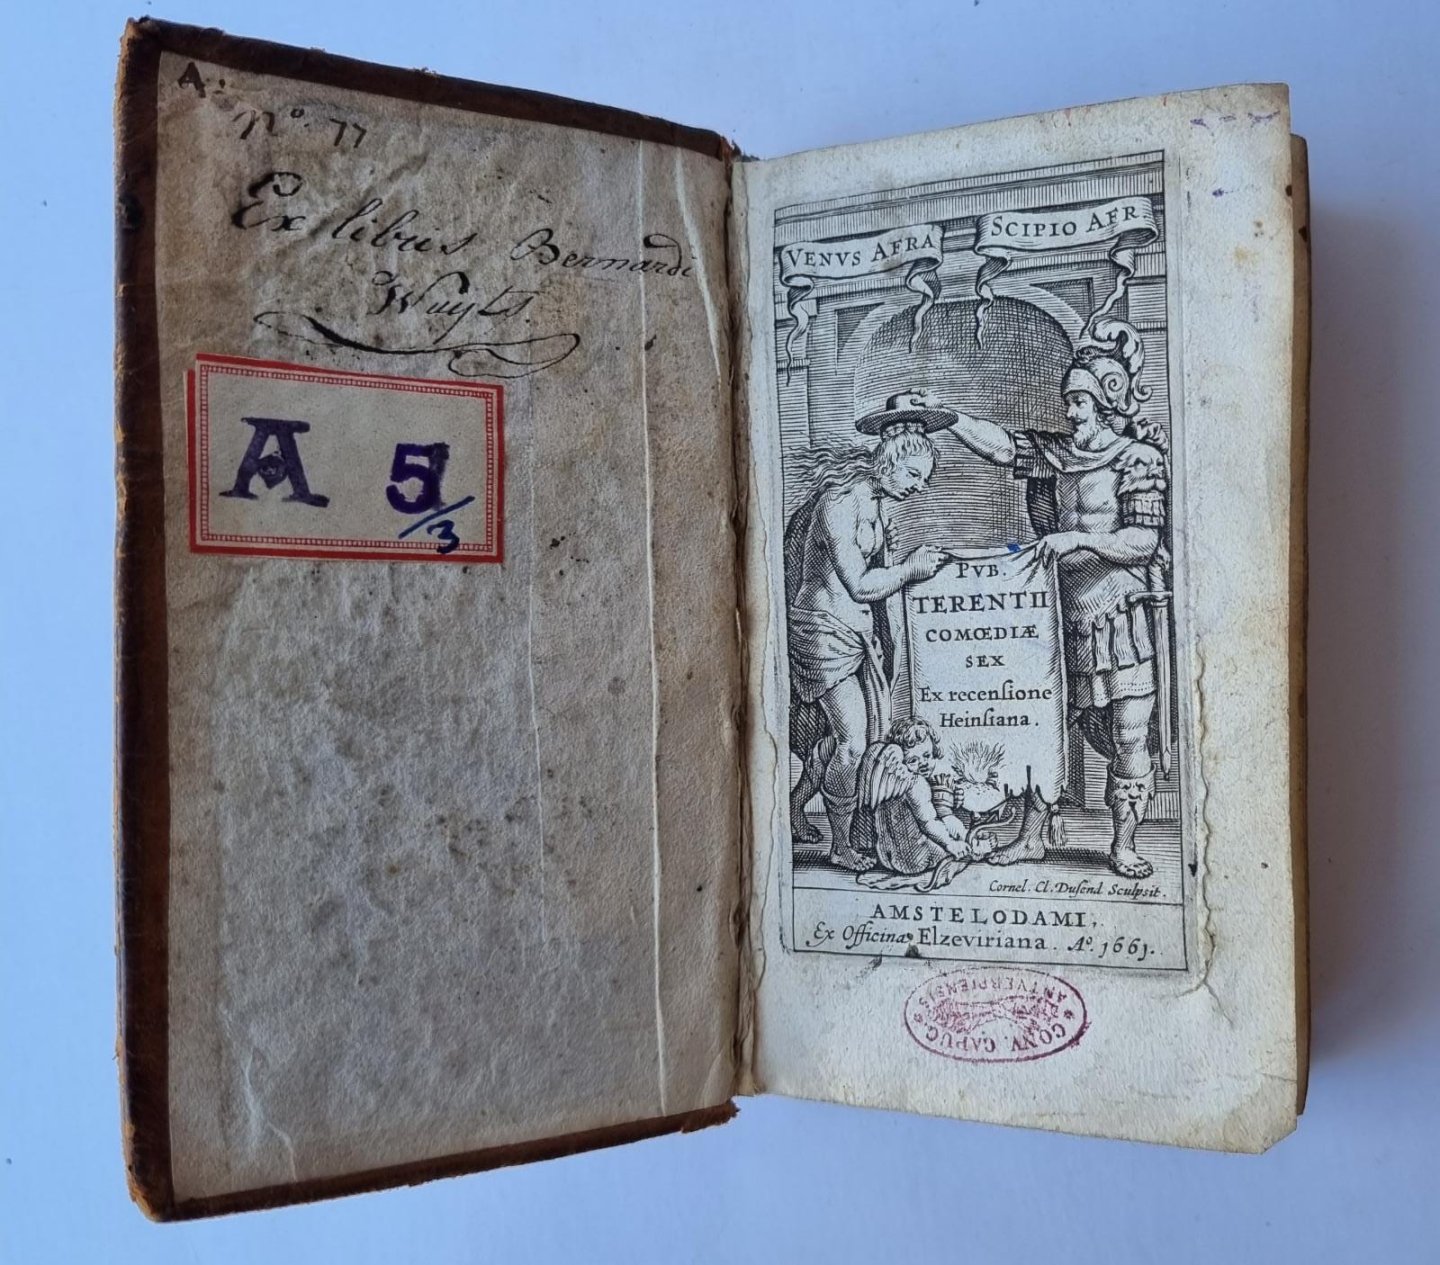 A:
Nº. 77
Ex libris Bernardi
Wuyts.
A 5/3
VENVS AFRA
SCIPIO AFR
PVB.
TERENTII
COMŒDIÆ
SEX
Ex recenſione
Heinſiana.
Cornel. Cl. Duſend Sculpsit.
AMSTELODAMI,
Ex Officina Elzeviriana. Aº. 1661.
* CONV. CAPUC. * ANTVERPIENSIS